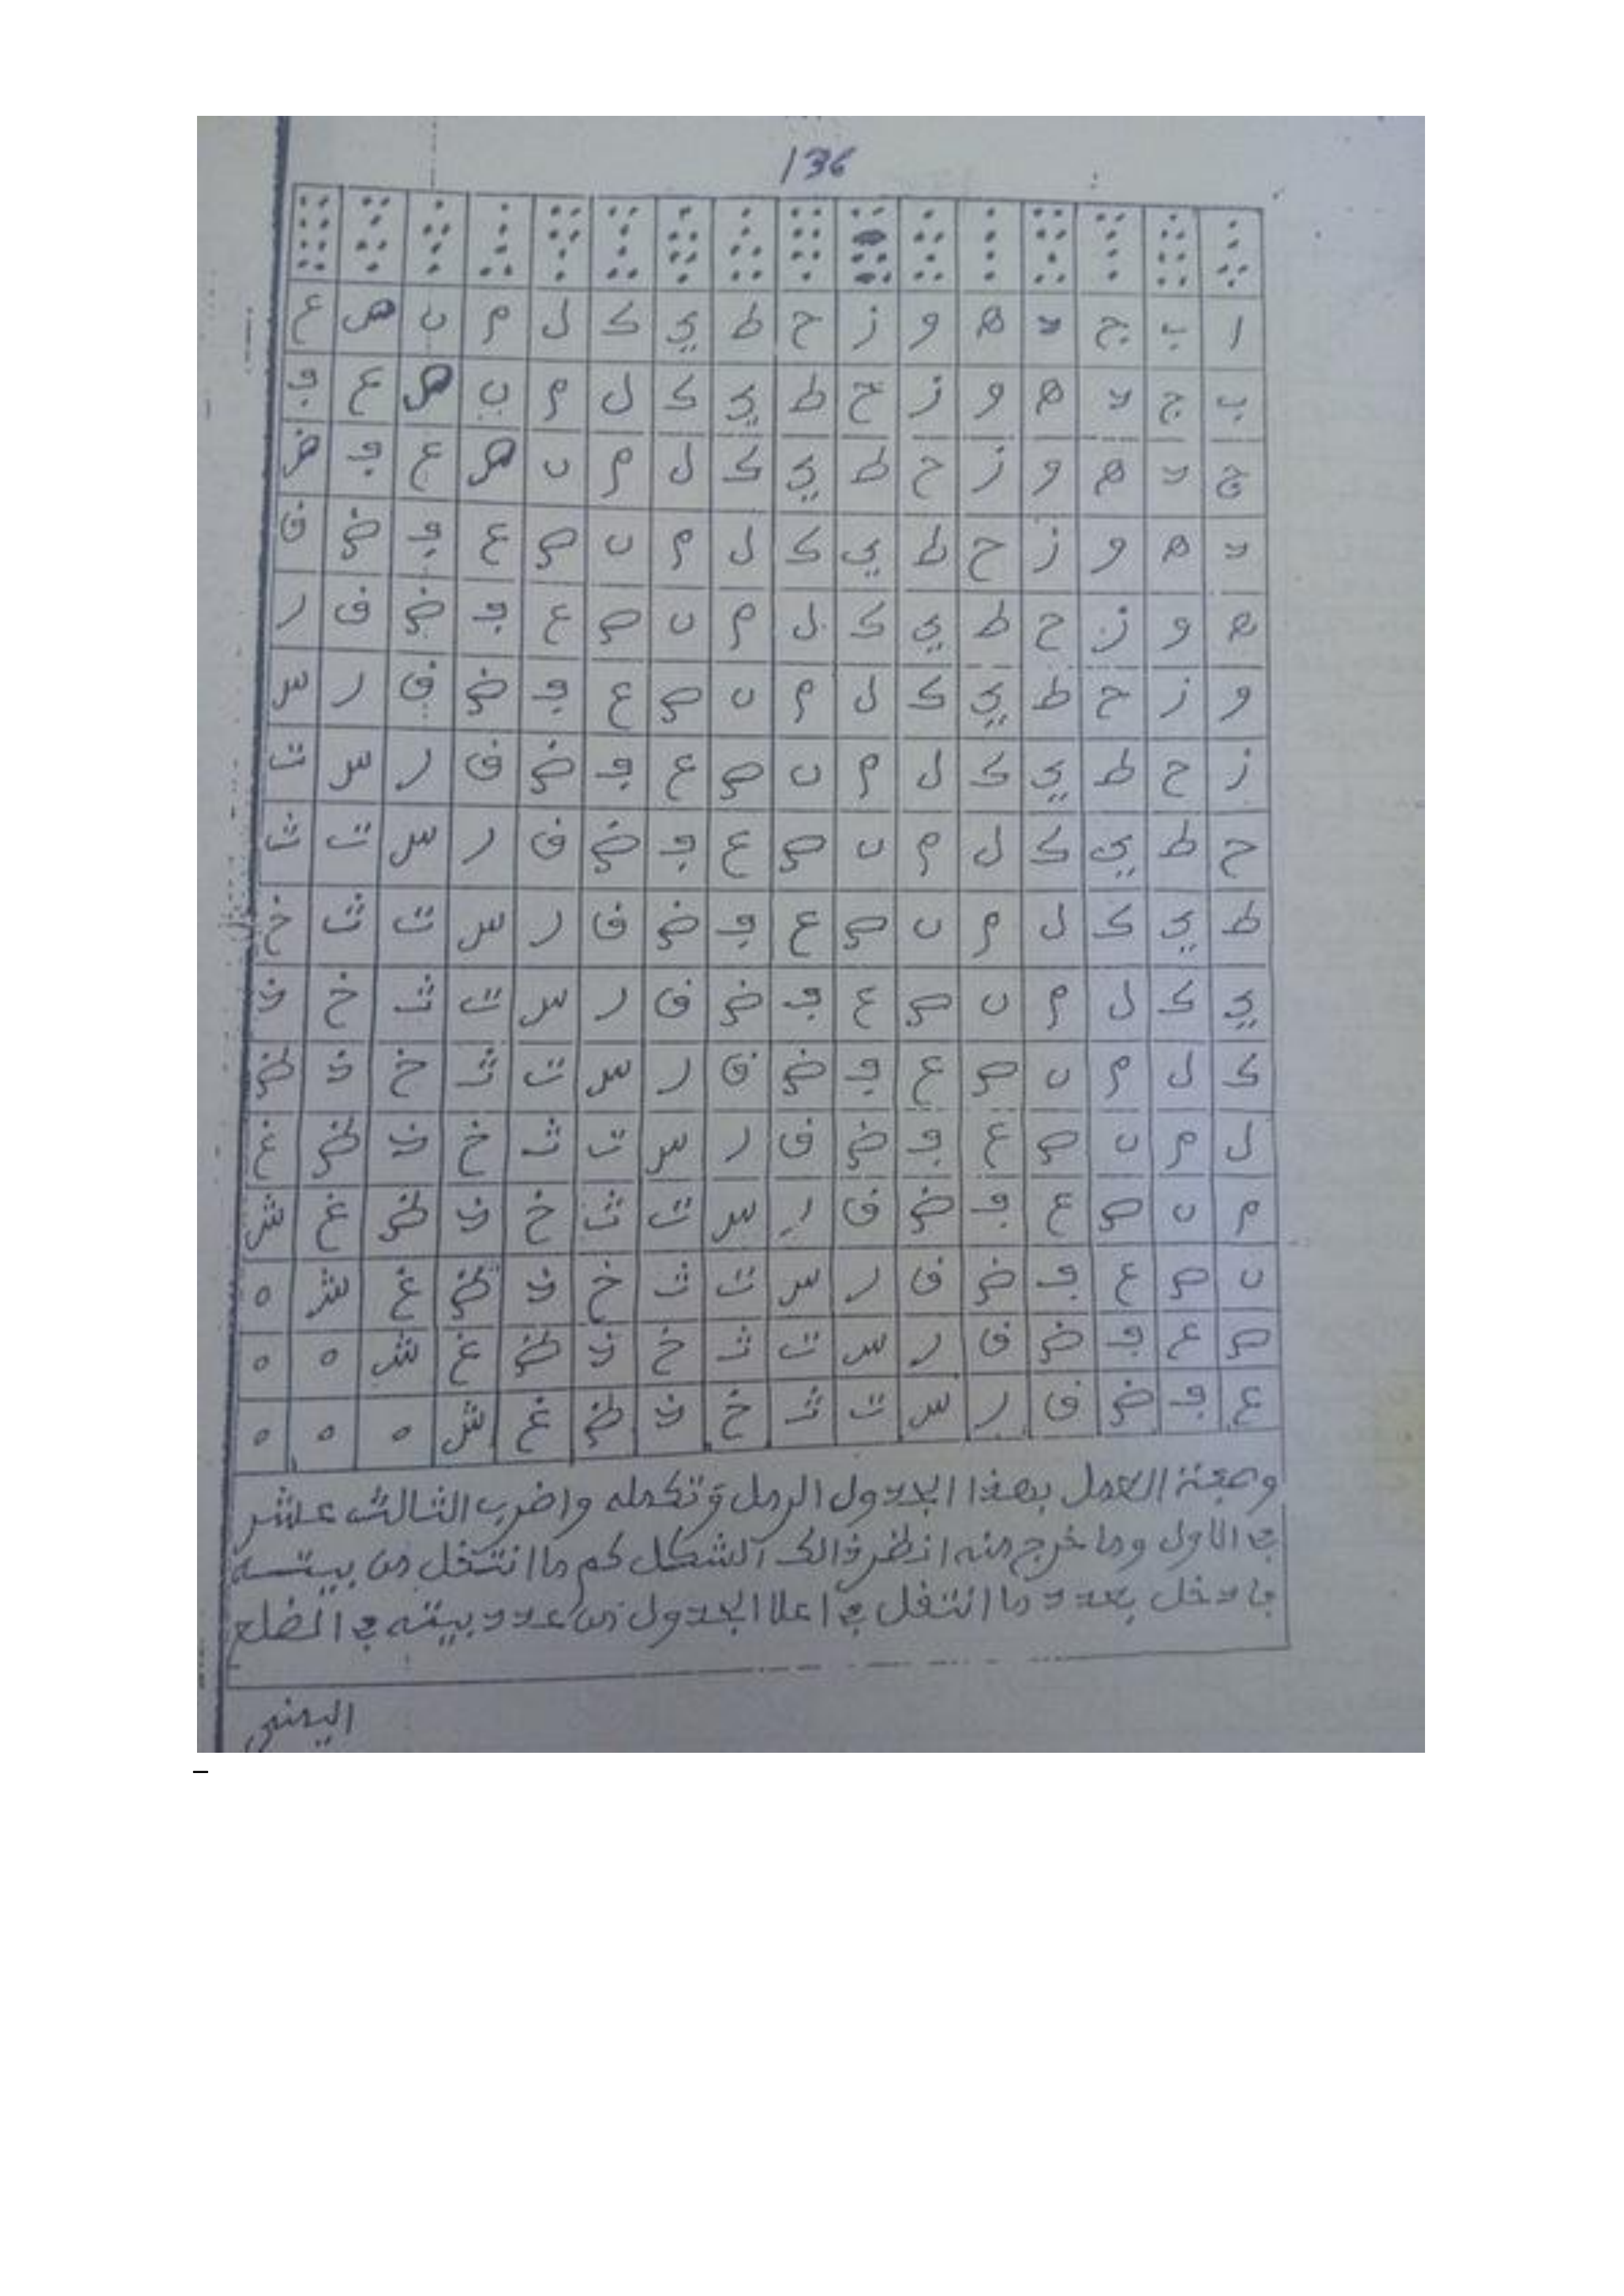 136
ا ب ج د ه و ز ح ط ي ك ل م ن ص ع
ب ج د ه و ز ح ط ي ك ل م ن ص ع ف
ج د ه و ز ح ط ي ك ل م ن ص ع ف ض
د ه و ز ح ط ي ك ل م ن ص ع ف ض ق
ه و ز ح ط ي ك ل م ن ص ع ف ض ق ر
و ز ح ط ي ك ل م ن ص ع ف ض ق ر س
ز ح ط ي ك ل م ن ص ع ف ض ق ر س ت
ح ط ي ك ل م ن ص ع ف ض ق ر س ت ث
ط ي ك ل م ن ص ع ف ض ق ر س ت ث خ
ي ك ل م ن ص ع ف ض ق ر س ت ث خ ذ
ك ل م ن ص ع ف ض ق ر س ت ث خ ذ ظ
ل م ن ص ع ف ض ق ر س ت ث خ ذ ظ غ
م ن ص ع ف ض ق ر س ت ث خ ذ ظ غ ش
ن ص ع ف ض ق ر س ت ث خ ذ ظ غ ش ه
ص ع ف ض ق ر س ت ث خ ذ ظ غ ش ه ه
ع ف ض ق ر س ت ث خ ذ ظ غ ش ه ه ه
وصفة العمل بهذا الجدول الرمل وتكمله واضرب الثالث عشر
في الاول وما خرج منه انظر ذالك الشكل كم ما انتقل من بيته
فادخل بعدد ما انتقل في اعلا الجدول من عدد بيته في الضلع
اليمنى